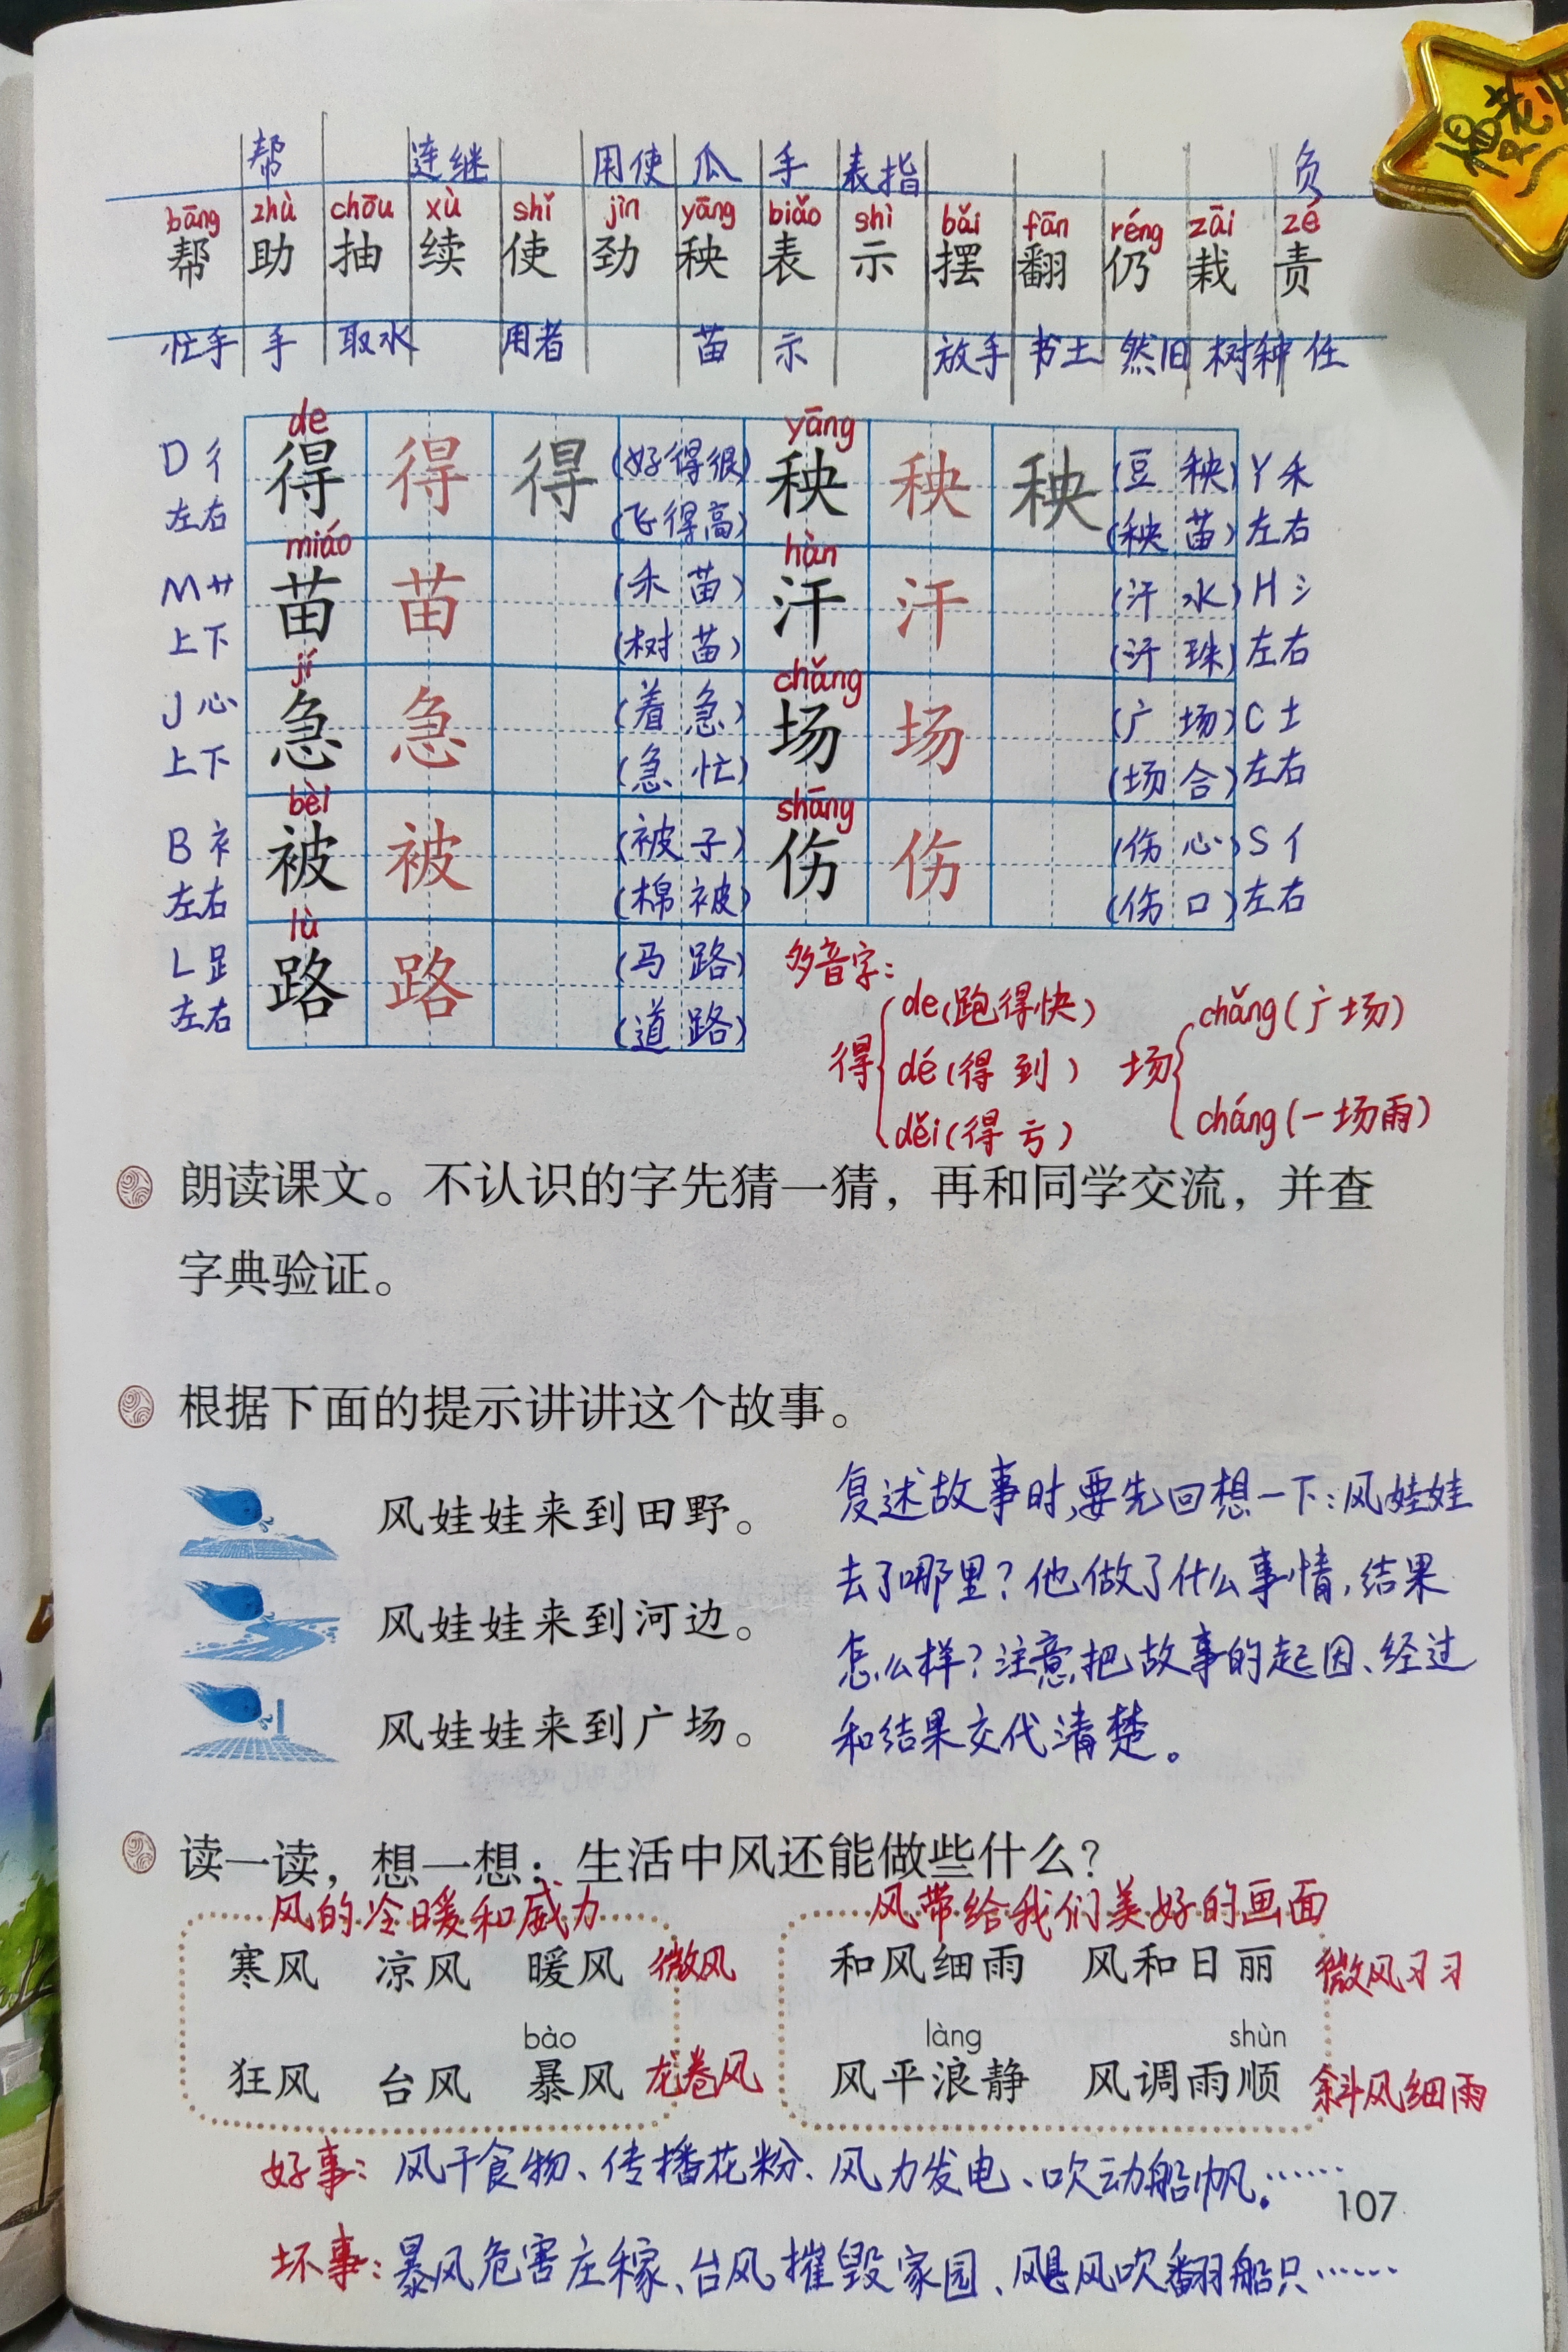 帮 连继 用使 瓜 手 表指 负
bāng zhù chōu xù shǐ jìn yāng biǎo shì bǎi fān réng zāi zé
帮 助 抽 续 使 劲 秧 表 示 摆 翻 仍 栽 责
忙手 手 取水 用者 苗 示 放手 书土 然旧 树种 任
de yāng
D彳 得 得 得 (好得很) 秧 秧 秧 (豆秧) Y禾
左右 (飞得高) (秧苗) 左右
miáo hàn
M艹 苗 苗 (禾苗) 汗 汗 (汗水) H氵
上下 (树苗) (汗珠) 左右
jí chǎng
J心 急 急 (着急) 场 场 (广场) C土
上下 (急忙) (场合) 左右
bèi shāng
B衤 被 被 (被子) 伤 伤 (伤心) S亻
左右 (棉被) (伤口) 左右
lù
L足 路 路 (马路)
左右 (道路)
多音字:
得 de(跑得快) dé(得到) děi(得亏)
场 chǎng(广场) cháng(一场雨)
朗读课文。不认识的字先猜一猜，再和同学交流，并查
字典验证。
根据下面的提示讲讲这个故事。
风娃娃来到田野。
风娃娃来到河边。
风娃娃来到广场。
复述故事时,要先回想一下:风娃娃
去了哪里?他做了什么事情,结果
怎么样?注意把故事的起因、经过
和结果交代清楚。
读一读，想一想：生活中风还能做些什么？
风的冷暖和威力 风带给我们美好的画面
寒风 凉风 暖风 微风 和风细雨 风和日丽 微风习习
bào làng shùn
狂风 台风 暴风 龙卷风 风平浪静 风调雨顺 斜风细雨
好事: 风干食物、传播花粉、风力发电、吹动船帆。……
107
坏事: 暴风危害庄稼、台风摧毁家园、飓风吹翻船只……